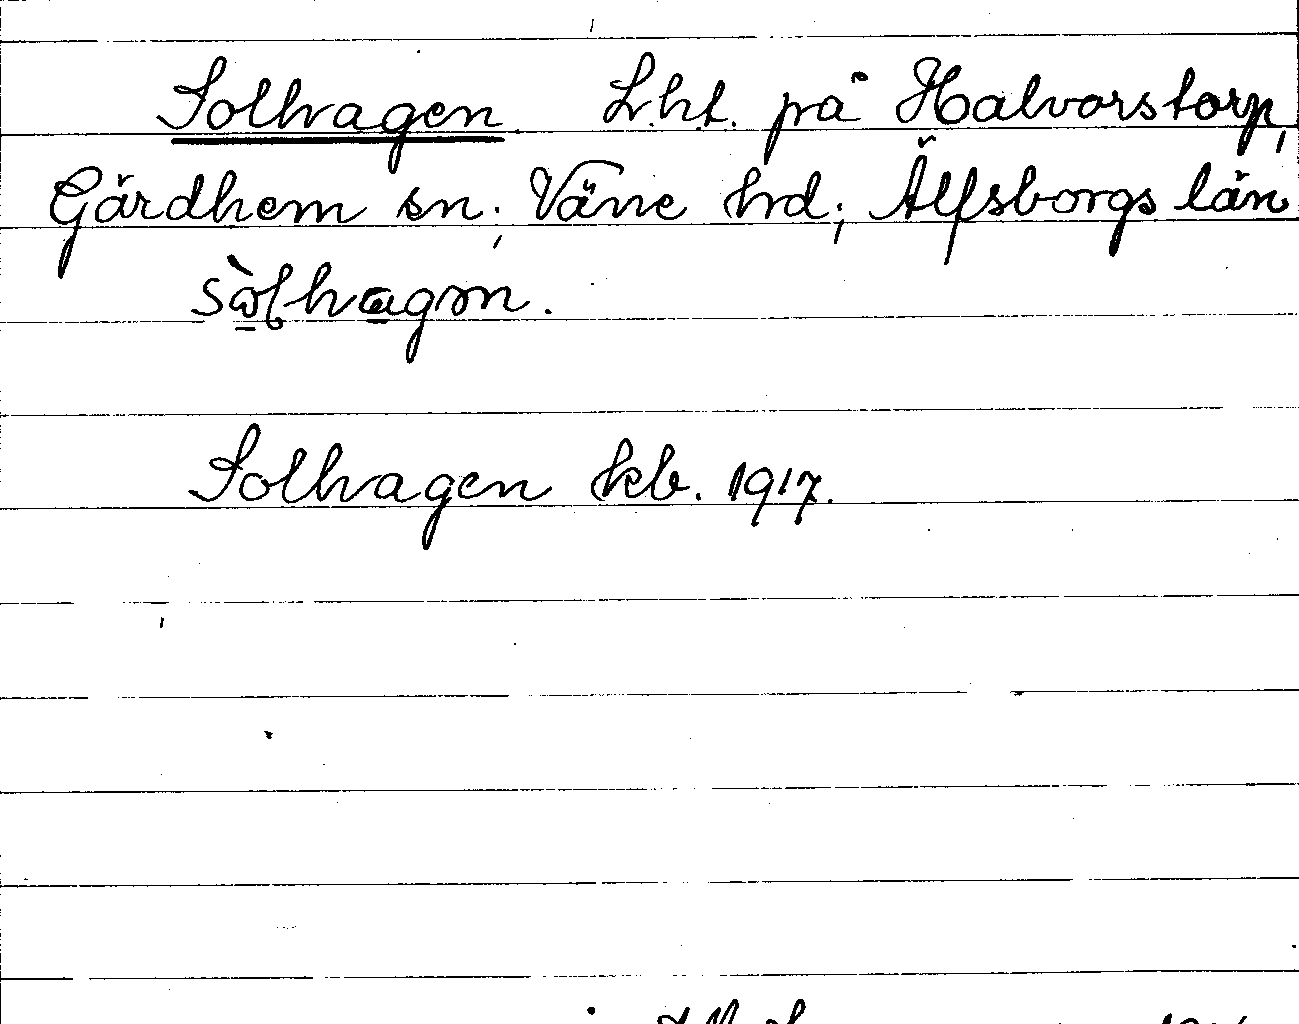 Solhagen. L.ht. på Halvorstorp,
Gärdhem sn; Väne hrd; Älfsborgs län
Solhagen kb. 1917.